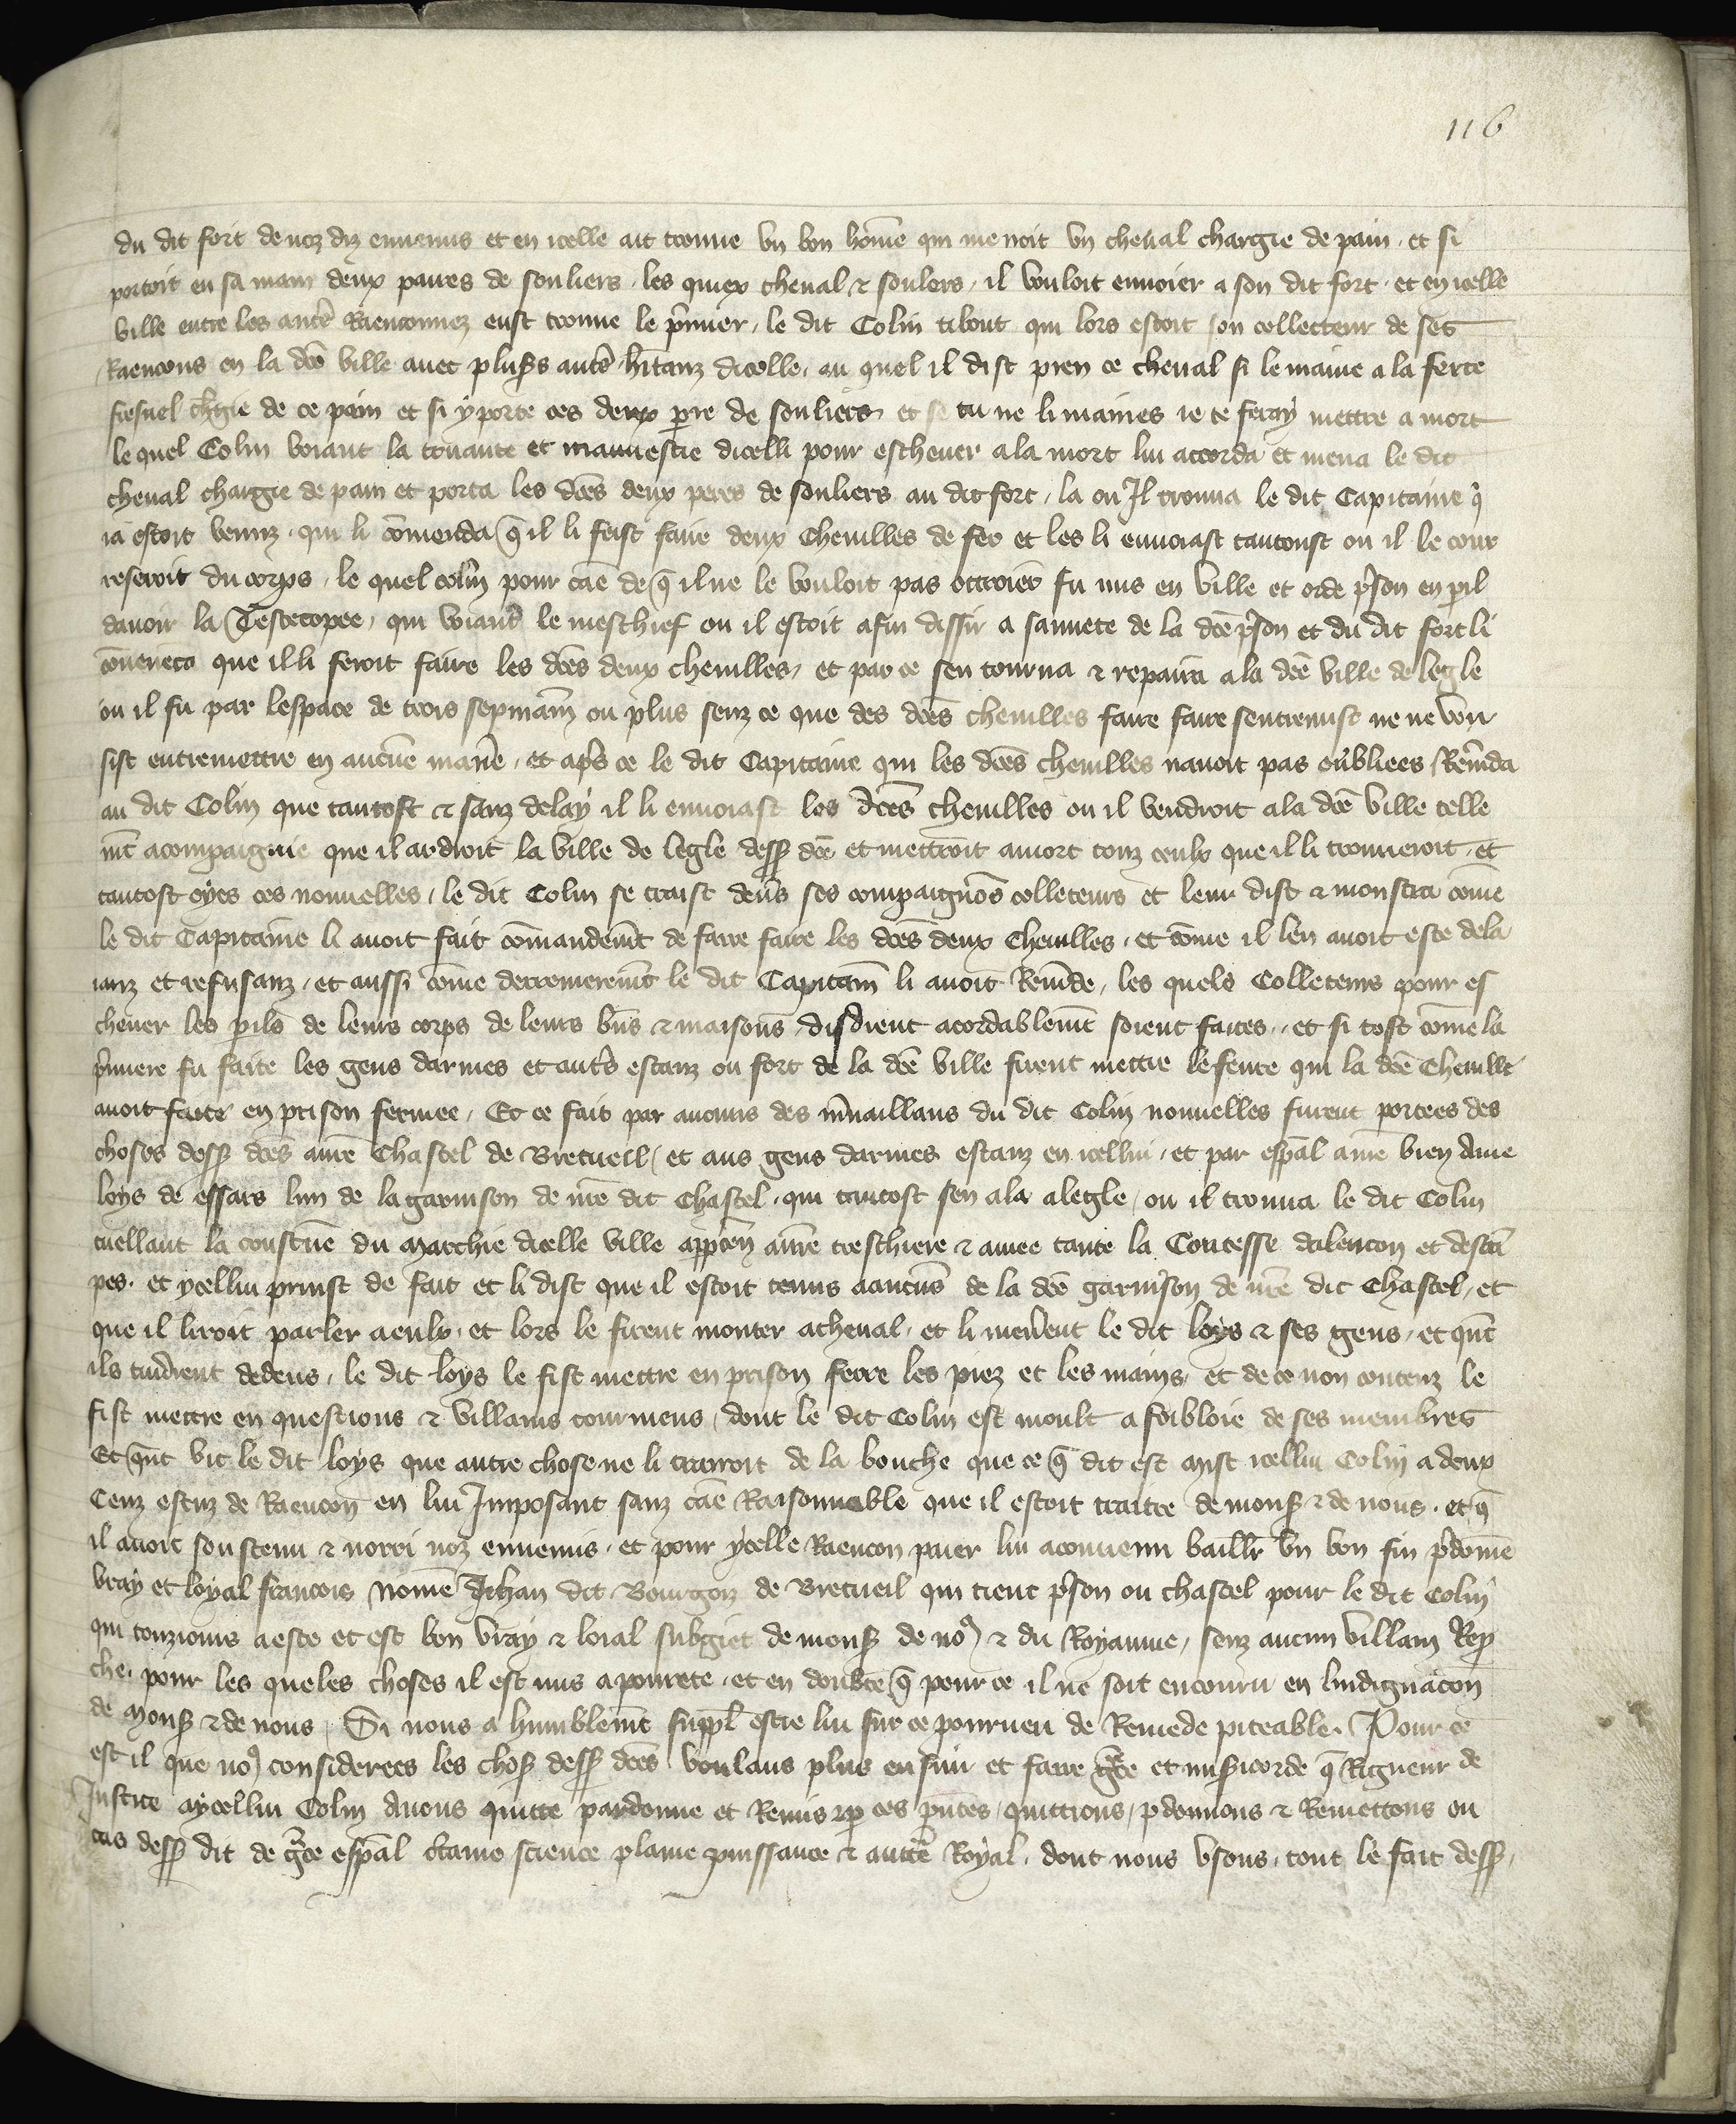 116
du dit fort de noz diz ennemis et en icelle ait trouve un bon hom̄e qui menoit un cheval chargie de pain . et si
portoit en sa main deux paires de souliers . les quiex cheval & soulers . il vouloit envoier a son dit fort . et en icelle
ville entre les autr̄s Raenconnez eust trouve le p̄mier , le dit Colin tibout qui lors estoit son collecteur de ses
Raencons en la dc̄e ville avec plus̄s autr̄s hītanz dicelle . au quel il dist pren ce cheval si le maine a la ferte
fresnel ch̄gie de ce pain et si y porte ces deux p̄re de souliers et se tu ne li maines ie te feray mettre a mort
le quel Colin voiant la cruaute et mauvestie dicelli pour eschever a la mort lui accorda et mena le dit
cheval chargie de pain et porta les dc̄es deux peres de souliers au dit fort , la ou Il trouva le dit Capitaine q̄
ia estoit venuz . qui li com̄enda q̄ il li feist faire deux Chevilles de fer et les li envoiast tantoust ou il le cour
reseroit du corps , le quel colin pour cāe de q̄ il ne le vouloit pas ottroier fu mis en ville et orde p̄son en p̄il
davoir la Teste copee , qui voiant le meschief ou il estoit afin dissir a sauvete de la dc̄e p̄son et du dit fort li
cōvenca que il li feroit faire les dc̄es deux chevilles , et par ce sen tourna & repaira a la dc̄e ville de legle
ou il fu par lespace de trois sepmain̄ ou plus senz ce que des dc̄es chevilles faire faire sentremist ne ne vou
sist entremettre en aucūe manīe , et ap̄s ce le dit Capitaine qui les dc̄es chevilles navoit pas oubliees Rem̄da
au dit Colin que tantost & sanz delay il li envoiast les dc̄es chevilles ou il vendroit a la dc̄e ville telle
mt̄ acompaignie que il ardroit la ville de legle dess̄ dc̄e et mettroit a mort touz ceulx que il li trouveroit . et
tantost oyes ces nouvelles , le dit Colin se traist dev̄s ses compaignōs colleteurs et leur dist & monstra com̄e
le dit Capitaine li avoit fait com̄andemt̄ de faire faire les dc̄es deux chevilles . et com̄e il len avoit este dela
ianz et refusanz , et aussi com̄e derrenierem̄t le dit Capitain̄ li avoit Rem̄de , les quels Colleteurs pour es
chever les p̄ilz de leurs corps de leurs bn̄s & maisons disdrent acordablem̄t soient faites . et si tost com̄e la
p̄miere fu faite les gens darmes et autr̄s estanz ou fort de la dc̄e ville firent mettre le fevre qui la dc̄e Cheville
avoit faite en prison fermee , Et ce fait par aucuns des m̄vaillans du dit Colin nouvelles furent portees des
choses dess̄ dc̄es a nr̄e Chastel de Bretueil , et aus gens darmes estanz en icellui . et par esp̄al a nr̄e bien Ame
loys de essars lun de la garnison de nr̄e dit Chastel . qui tantost sen ala a legle , ou il trouva le dit Colin
cuellant la coustūe du marchie dicelle ville app̄ten̄ a nr̄e treschiere & amee tante la Contesse dalencon et destā
pes . et ycellui prinst de fait et li dist que il estoit tenus a aucūs de la dc̄e garnison de nr̄e dit Chastel , et
que il liroit parler a eulx . et lors le firent monter a cheval . et li mēvent le dit loys & ses gens . et qn̄t
ils vindrent dedens , le dit loys le fist mettre en prison ferre les piez et les mains , et de ce non contenz le
fist mettre en questions & villains tourmens , dont le dit Colin est moult afoibloie de ses membres
Et qn̄t vit le dit loys que autre chose ne li trairoit de la bouche que ce q̄ dit est mist icellui Colin a deux
Cenz escuz de Raencon en lui Imposant sanz cāe Raisonnable que il estoit traitre de mons̄ & de nous . et q̄
il avoit soustenu & norri noz ennemis . et pour ycelle Raencon paier lui a convenu baill̄r un bon fin p̄dom̄e
vray et loyal francois nom̄e Jehan dit Bourgoiz de Bretueil qui tient p̄son ou chastel pour le dit Colin
qui touziours a este et est bon vray & loial subgiet de mons̄ de no9 & du Royaume , senz aucun villain Rep̄
che . pour les queles choses il est mis a pourete . et en doubte q̄ pour ce il ne soit encouru en lindignac̄on
de Mons̄ & de nous . Si nous a humblem̄t suppl̄ estre lui sur ce pourveu de Remede piteable . Pour ce
est il que no9 considerees les chos̄ dess̄ dc̄es voulans plus ensuir et faire gr̄ce et miś̄icorde q̄ Rigueur de
Justice a ycellui Colin Avons quitte pardonne et Remis & p̄ ces p̄ntes , quittons , p̄donnons & Remettons ou
cas dess̄ dit de gr̄ce esp̄al c̄taine science plaine puissance & auttē Royal . dont nous usons . tout le fait dess̄ .